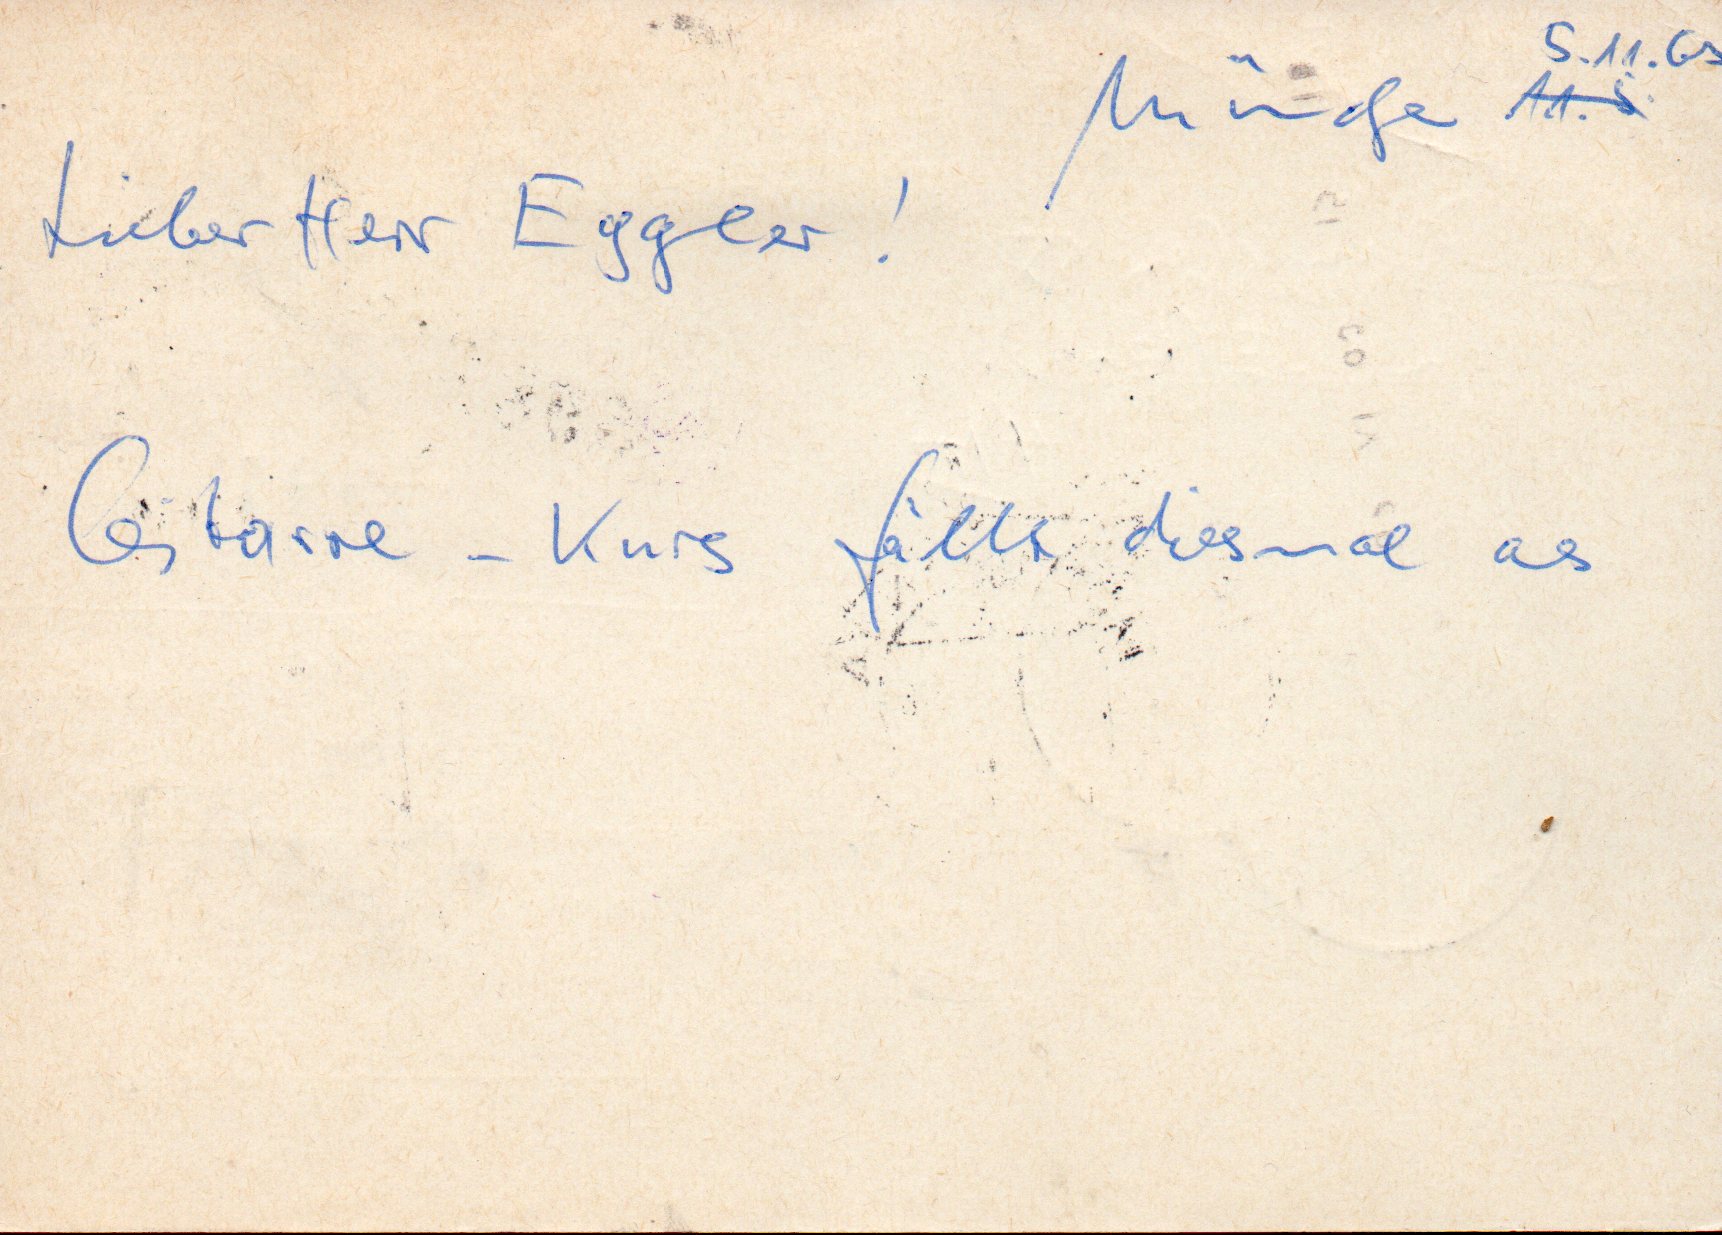 5.11.63
München 11.5.
Lieber Herr Eggler!
Gitarre - Kurs fällt diesmal aus